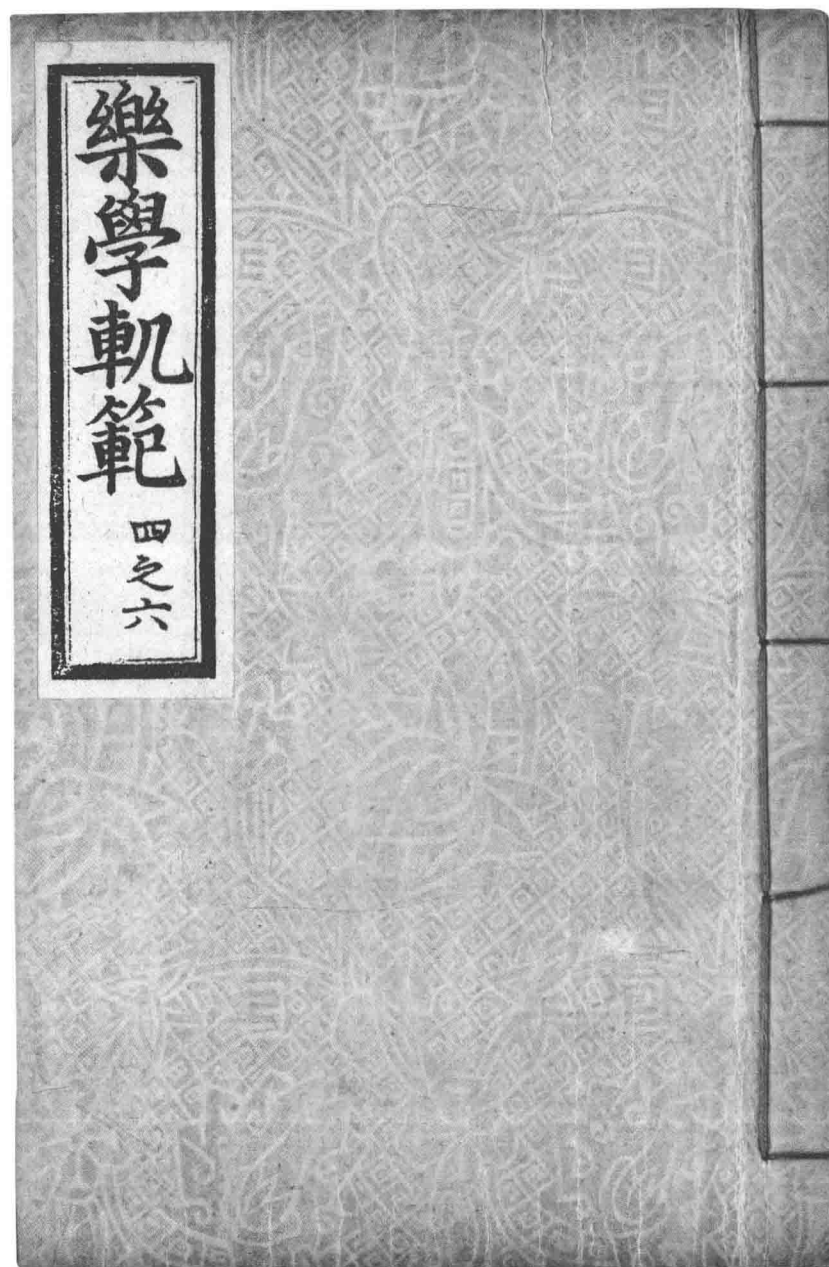 樂學軌範
四之六